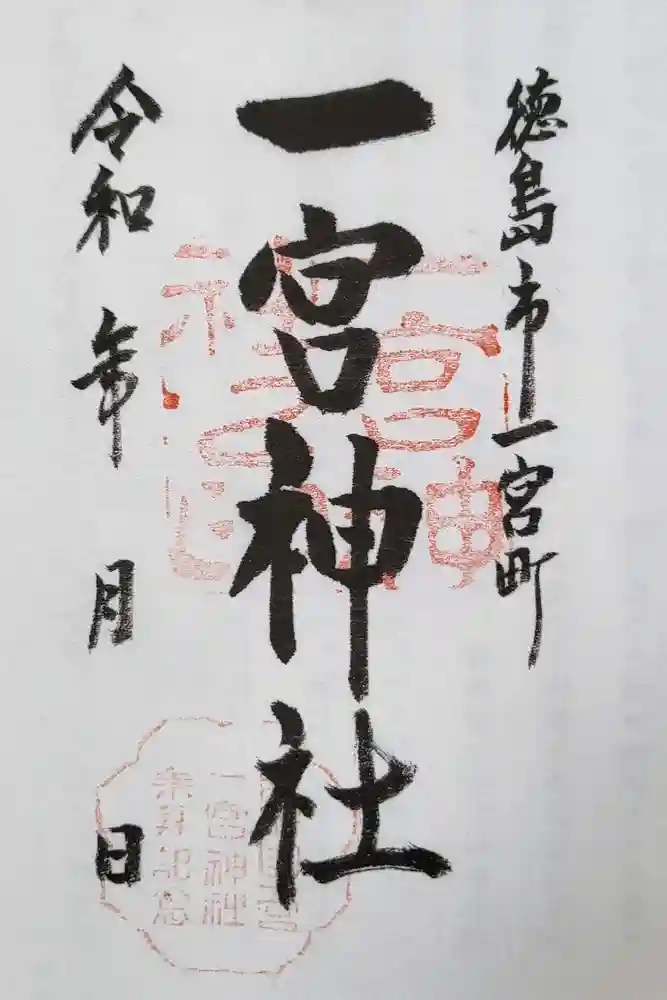 徳島市一宮町
一宮神社
令和 年 月 日
一宮神
一宮神社
参拝記念